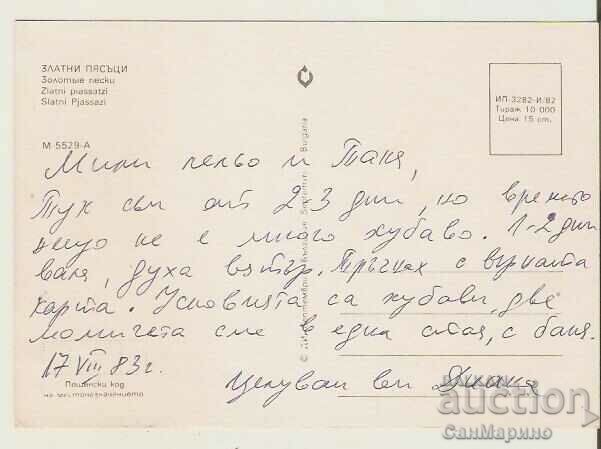 ЗЛАТНИ ПЯСЪЦИ
Золотые пески
Zlatni piassatzi
Slatni Pjassazi
М-5529-А
ИП-3282-И/82
Тираж 10 000
Цена 15 ст.
Мили лельо и Таня,
Тук съм от 2-3 дни, но времето
нещо не е много хубаво. 1-2 дни
валя, духа вятър. Тръгнах с
карта. Условията са хубави две
момичета сме в една стая, с баня.
17 VIII 83 г.
Целувам ви Диана
Пощенски код
на местоназначението
© ДИ „Септември", България Septemvri, Bulgaria
auction
СанМарино